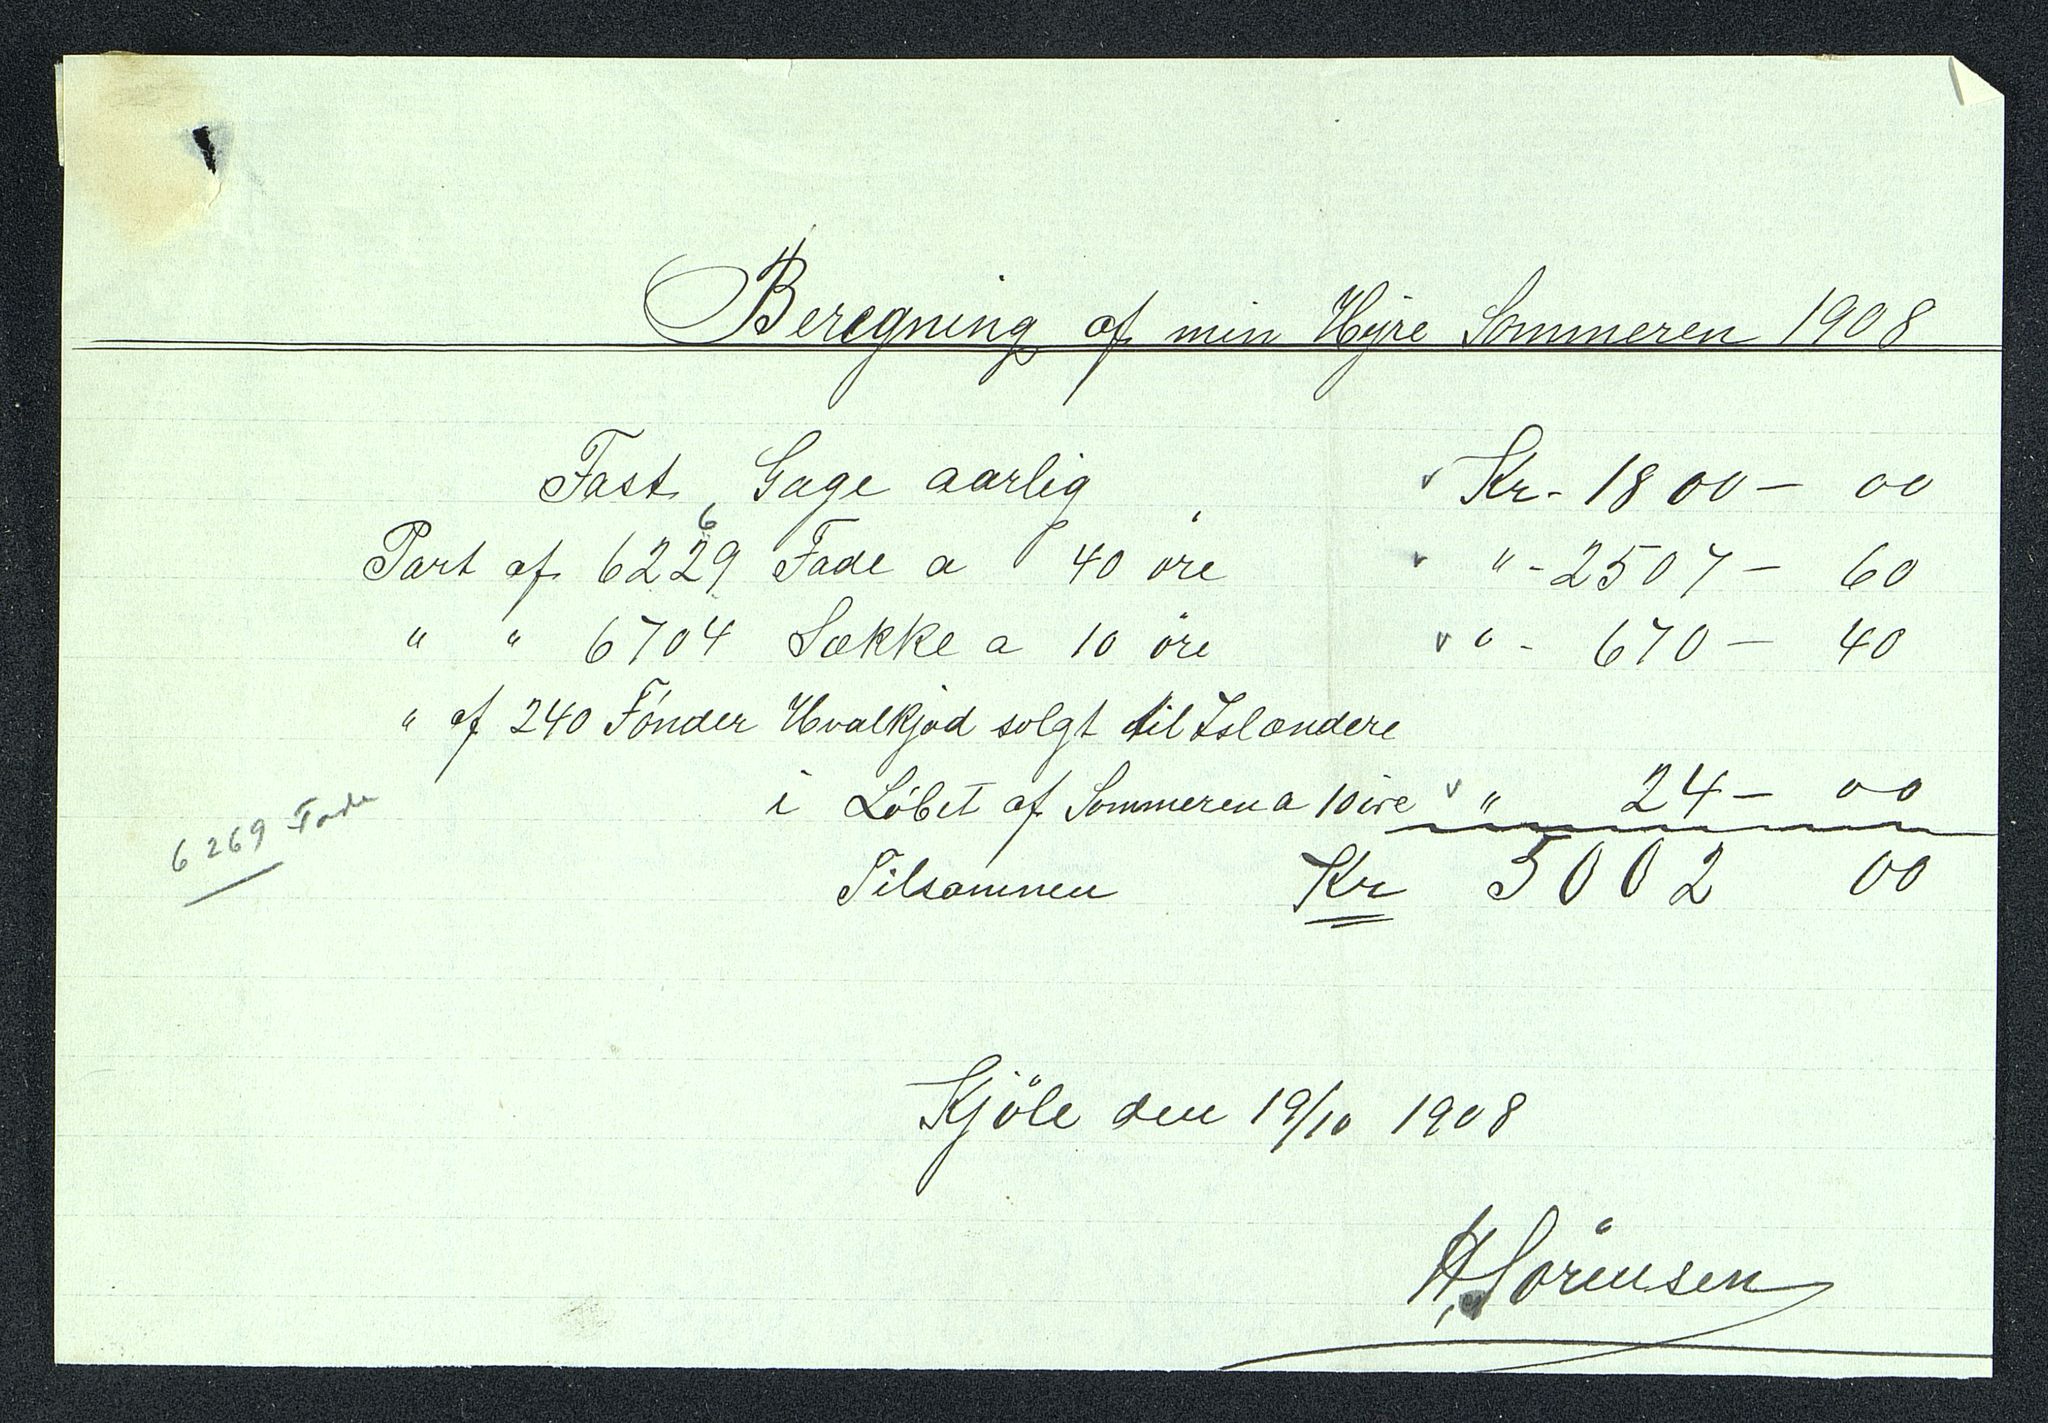 Beregning af min Hyre Sommeren 1908
Fast Gage aarlig v Kr - 1800 - 00
6
Part af 6229 Fade a 40 öre v " - 2507 - 60
" " 6704 Sække a 10 öre v " - 670 - 40
" af 240 Tónder Hvalkjød solgt til Islændere
i Löbet af Sommeren a 10 öre v " 24 - 00
6269 Fade
Tilsammen Kr 5002 00
Kjöle den 19/10 1908
H. Sörensen